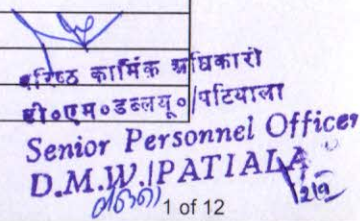 वरिष्ठ कार्मिक अधिकारी
डी०एम०डब्लयू०/पटियाला
Senior Personnel Officer
D.M.W.|PATIALA
1 of 12